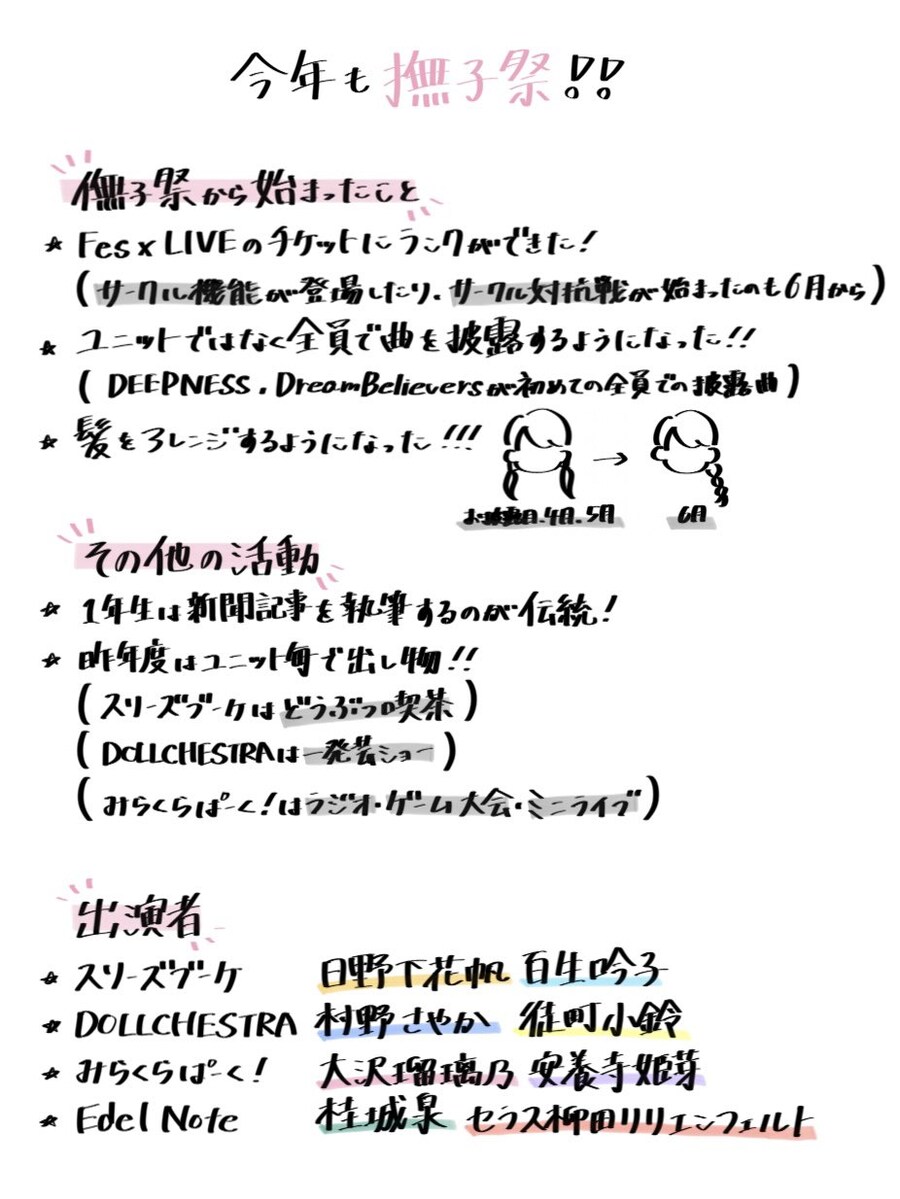 今年も撫子祭!!
撫子祭から始まったこと
★ Fes x LIVEのチケットにランクができた!
(サークル機能が登場したり、サークル対抗戦が始まったのも6月から)
★ ユニットではなく全員で曲を披露するようになった!!
(DEEPNESS、Dream Believersが初めての全員での披露曲)
★ 髪をアレンジするようになった!!!
→
お披露目、4月、5月 6月
その他の活動
★ 1年生は新聞記事を執筆するのが伝統!
★ 昨年度はユニット毎で出し物!!
(スリーズブーケはどうぶつ喫茶)
(DOLLCHESTRAは一発芸ショー)
(みらくらぱーく!はラジオ・ゲーム大会・ミニライブ)
出演者
★ スリーズブーケ 日野下花帆 百生吟子
★ DOLLCHESTRA 村野さやか 徒町小鈴
★ みらくらぱーく! 大沢瑠璃乃 安養寺姫芽
★ Edel Note 桂城泉 セラス柳田リリエンフェルト